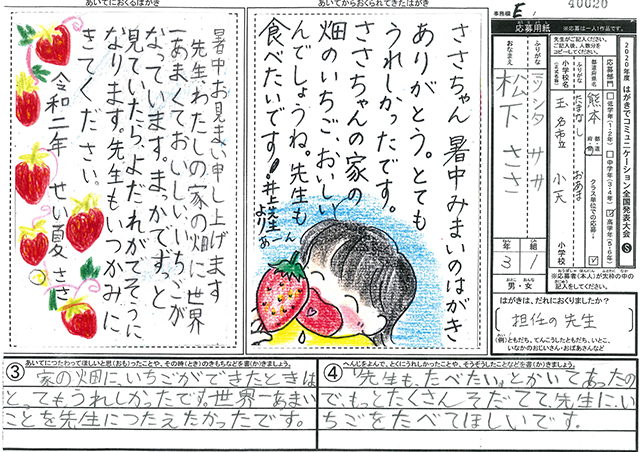 あいてにおくるはがき
暑中お見まい申し上げます
先生、わたしの家の畑に世界
一あまくておいしいいちごが
なっています。まっかです。と
見ていたら、よだれがでそうに
なります。先生もいつかみに
きてください。
令和二年 せい夏 ささ
あいてからおくられてきたはがき
ささちゃん 暑中みまいのはがき
ありがとう。とても
うれしかったです。
ささちゃんの家の
畑のいちご、おいしい
んでしょうね。先生も
食べたいです!
井上先生より
40020
事務欄
E
応募用紙
※応募は一人1作品です。
2020年度 はがきでコミュニケーション全国発表大会 S
先生がご記入ください。
ご記入後、人数分を
コピーしてください。
応募部門
低学年(1・2年)
中学年(3・4年)
高学年(5・6年)
都道府県名
熊本
都・道
府・県
クラス単位での応募
ふりがな
たまなし おあま
小学校名
(正式名称)
玉名市立 小天
小学校
ふりがな
マツシタ ササ
おなまえ
松下 ささ
年 組
3 1
男・女
※応募者(本人)が太枠の中の
記入をしてください。
はがきは、だれにおくりましたか?
担任の先生
(例)ともだち、てんこうしたともだち、いとこ、
いなかのおじいさん・おばあさんなど
③ あいてにつたわってほしいと思(おも)ったことや、その時(とき)のきもちなどを書(か)きましょう。
家の畑に、いちごができたときは
とってもうれしかったです。世界一あまい
ことを先生につたえたかったです。
④ へんじをよんで、とくにうれしかったことや、そうぞうしたことなどを書(か)きましょう。
「先生も、たべたい」とかいてあったの
で、もっとたくさんそだてて、先生に、い
ちごをたべてほしいです。